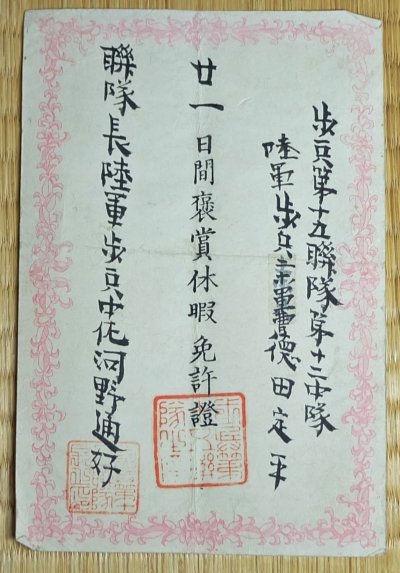 歩兵第十五聯隊第十二中隊
陸軍歩兵軍曹德田定平
廿一日間褒賞休暇免許證
聯隊長陸軍歩兵中佐河野通好